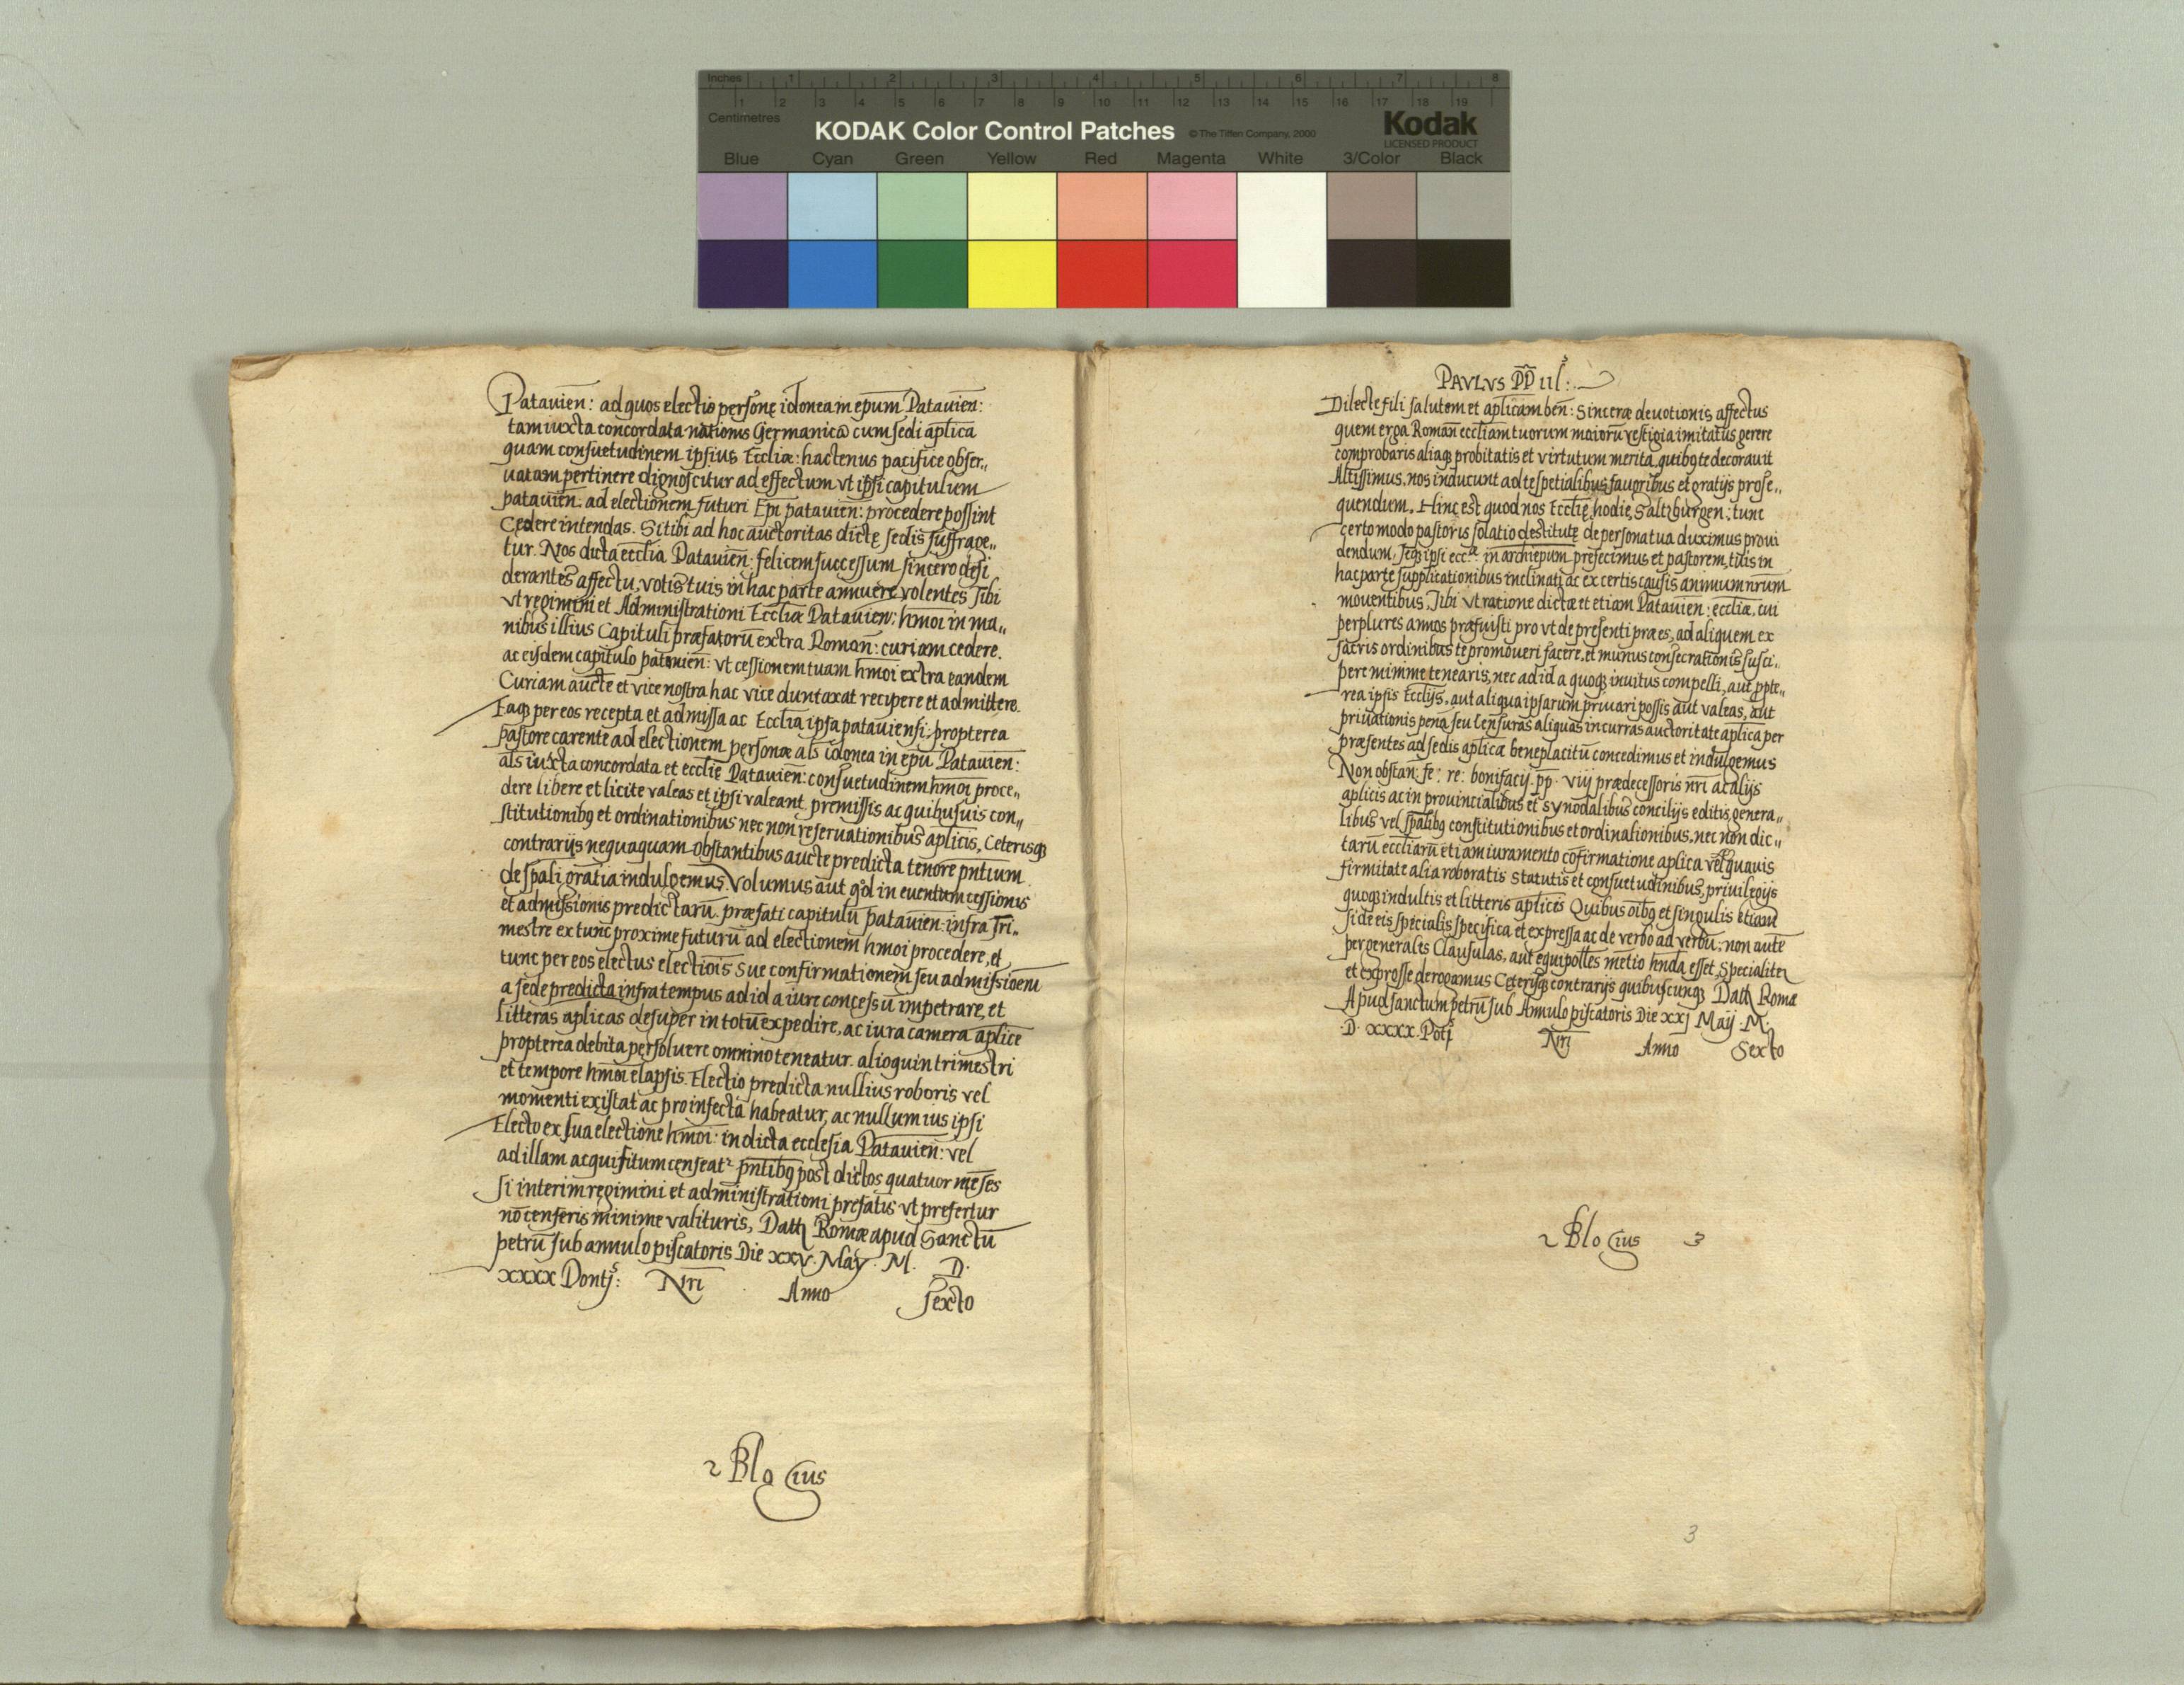 Inches 1 2 3 4 5 6 7 8
1 2 3 4 5 6 7 8 9 10 11 12 13 14 15 16 17 18 19
Centimetres
KODAK Color Control Patches © The Tiffen Company, 2000 Kodak
LICENSED PRODUCT
Blue Cyan Green Yellow Red Magenta White 3/Color Black
Patauien̄: ad quos electio persone idonea in ep̄um Patauien̄:
tam iuxta concordata nationis Germanicæ cum sedi aplica
quam consuetudinem ipsius Eccliæ: hactenus pacifice obser„
uatam pertinere dignoscitur ad effectum vt ipsi capitulum
patauien̄: ad electionem futuri Ep̄i patauien̄: procedere possint
Cedere intendas. Si tibi ad hoc auctoritas dictę sedis suffrage„
tur. Nos dicta ecclia Patauien̄: felicem successum sincero desi
derantes affectu, votis tuis in hac parte annuere volentes tibi
vt regimini et Administrationi Eccliæ Patauien̄: hmōi in ma„
nibus illius Capituli præfatorū extra Roman̄: curiam cedere.
ac eisdem capitulo patauien̄: vt cessionem tuam hmōi extra eandem
Curiam aucte et vice nostra hac vice duntaxat recipere et admittere.
Eaqȝ per eos recepta et admissa ac Ecclia ipsa patauiensi: propterea
pastore carente ad electionem personæ als idonea in epū Patauien̄:
als iuxta concordata et ecclię Patauien̄: consuetudinem hmōi proce„
dere libere et licite valeas et ipsi valeant premissis ac quibusuis con„
stitutionibȝ et ordinationibus nec non reseruationibus aplicis, Ceterisqȝ
contrarijs nequaquam obstantibus aucte predicta tenore pn̄tium
de sp̄ali gratia indulgemus. Volumus aut qd in euentum cessionis
et admissionis predictarū. præfati capitulū patauien̄: infra Tri„
mestre ex tunc proxime futurū ad electionem hmōi procedere, et
tunc per eos electus electiōis sue confirmationem seu admissiōem
a sede predicta infra tempus ad id a iure concessū impetrare, et
litteras aplicas desuper in totū expedire, ac iura camera aplice
propterea debita persoluere omnino teneatur. alioquin trimestri
et tempore hmōi elapsis. Electio predicta nullius roboris vel
momenti existat ac pro infecta habeatur, ac nullum ius ipsi
Electo ex sua electione hmōi: in dicta ecclesia Patauien̄: vel
ad illam acquisitum censeat² pn̄tibȝ post dictos quatuor mēses
si interim regimini et administrationi prefatis vt prefertur
nō censeris minime valituris, Datȝ Romæ apud Sanctū
petrū sub annulo piscatoris Die xxv. Maij. M. D.
xxxx Pontˢ: Nr̄i Anno Sexto
Blosius
PAVLVS PP III:
Dilecte fili salutem et aplicam ben̄: Sinceræ deuotionis affectus
quem erga Roman̄ eccliam tuorum maiorū vestigia imitatus gerere
comprobaris aliaqȝ probitatis et virtutum merita, quibȝ te decorauit
Altissimus, nos inducunt ad te spetialibus fauoribus et gratijs prose„
quendum. Hinc est quod nos Ecclię, hodie, Saltzburgen: tunc
certo modo pastoris solatio destitutę de persona tua duximus proui
dendum, teqȝ ipsi eccᵃ. in archiepum prefecimus et pastorem, tuis in
hac parte supplicationibus inclinati ac ex certis causis animum nr̄um
mouentibus, Tibi vt ratione dictæ et etiam Patauien: eccliæ, cui
perplures annos præfuisti pro vt de presenti praes, ad aliquem ex
sacris ordinibus te promoueri facere, et munus consecrationis susci„
pere minime tenearis, nec ad id a quoqȝ inuitus compelli, aut ppte„
rea ipsis Ecclijs, aut aliqua ipsarum priuari possis aut valeas, aut
priuationis pena seu Censuras aliquas incurras auctoritate aplica per
præsentes ad sedis aplicæ beneplacitū concedimus et indulgemus
Non obstan: fe: re: bonifacij. pp. viij prædecessoris nr̄i ac alijs
aplicis ac in prouincialibus et synodalibus concilijs editis, genera„
libus vel sp̄alibȝ constitutionibus et ordinationibus, nec non dic„
tarū eccliarū etiam iuramento cōfirmatione aplica vel quauis
firmitate alia roboratis statutis et consuetudinibus, priuilegijs
quoqȝ indultis et litteris aplicis Quibus oībȝ et singulis etiam
si de eis specialis specifica et expressa ac de verbo ad verbū: non autē
per generales Clausulas, aut equipollēs metio hn̄da esset, Specialiter
et expresse derogamus Ceterisqȝ contrarijs quibuscunqȝ Datȝ Romæ
Apud sanctum petrū sub Annulo piscatoris Die xxj Maij. M.
D. xxxx. Potˢ Nr̄i Anno Sexto
Blosius 3
3